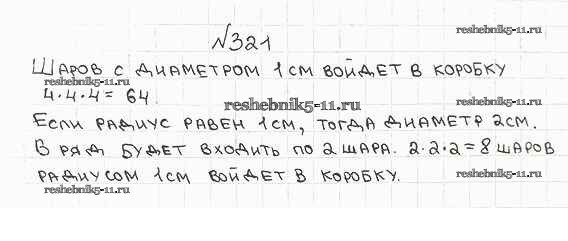 reshebnik5-11.ru
№321
Шаров с диаметром 1 см войдет в коробку
reshebnik5-11.ru
4·4·4 = 64.
reshebnik5-11.ru
reshebnik5-11.ru
Если радиус равен 1 см, тогда диаметр 2 см.
В ряд будет входить по 2 шара. 2·2·2 = 8 шаров
радиусом 1 см войдет в коробку.
reshebnik5-11.ru
reshebnik5-11.ru